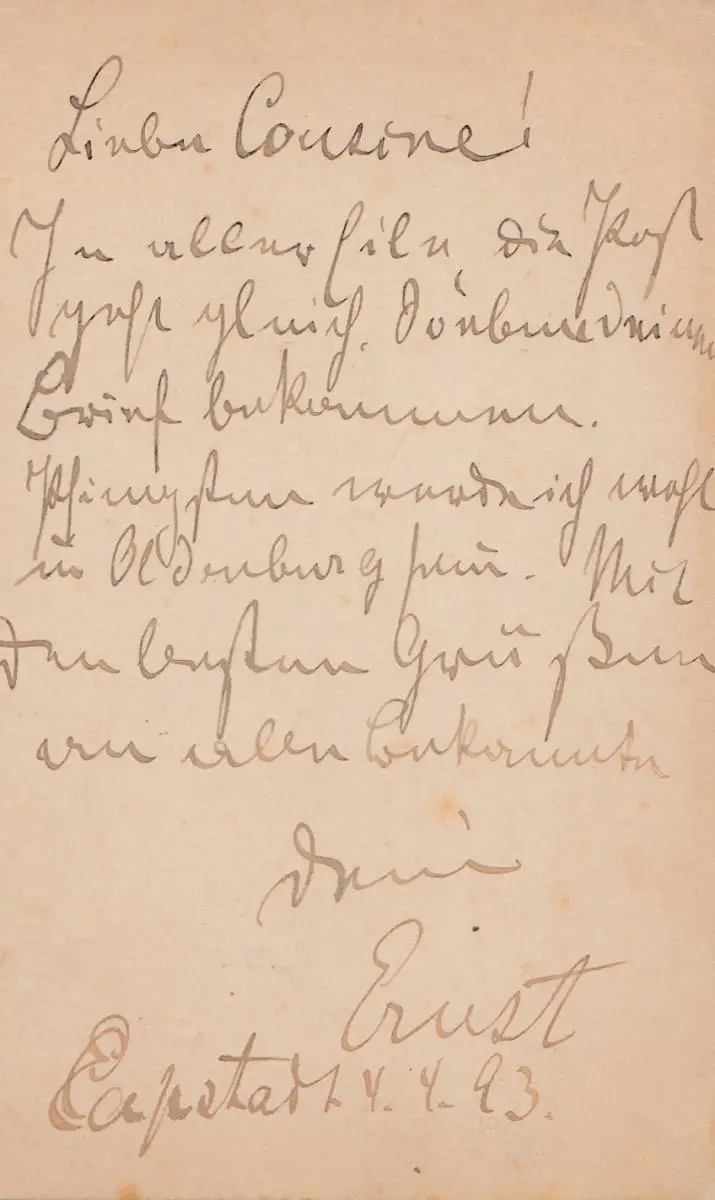 Liebe Cousine!
In aller Eile, die Post
geht gleich. Soeben Deinen
Brief bekommen.
Pfingsten werde ich wohl
in Oldenburg sein. Mit
den besten Grüßen
an alle Bekannte
Dein
Ernst
Capstadt 4. 4. 93.